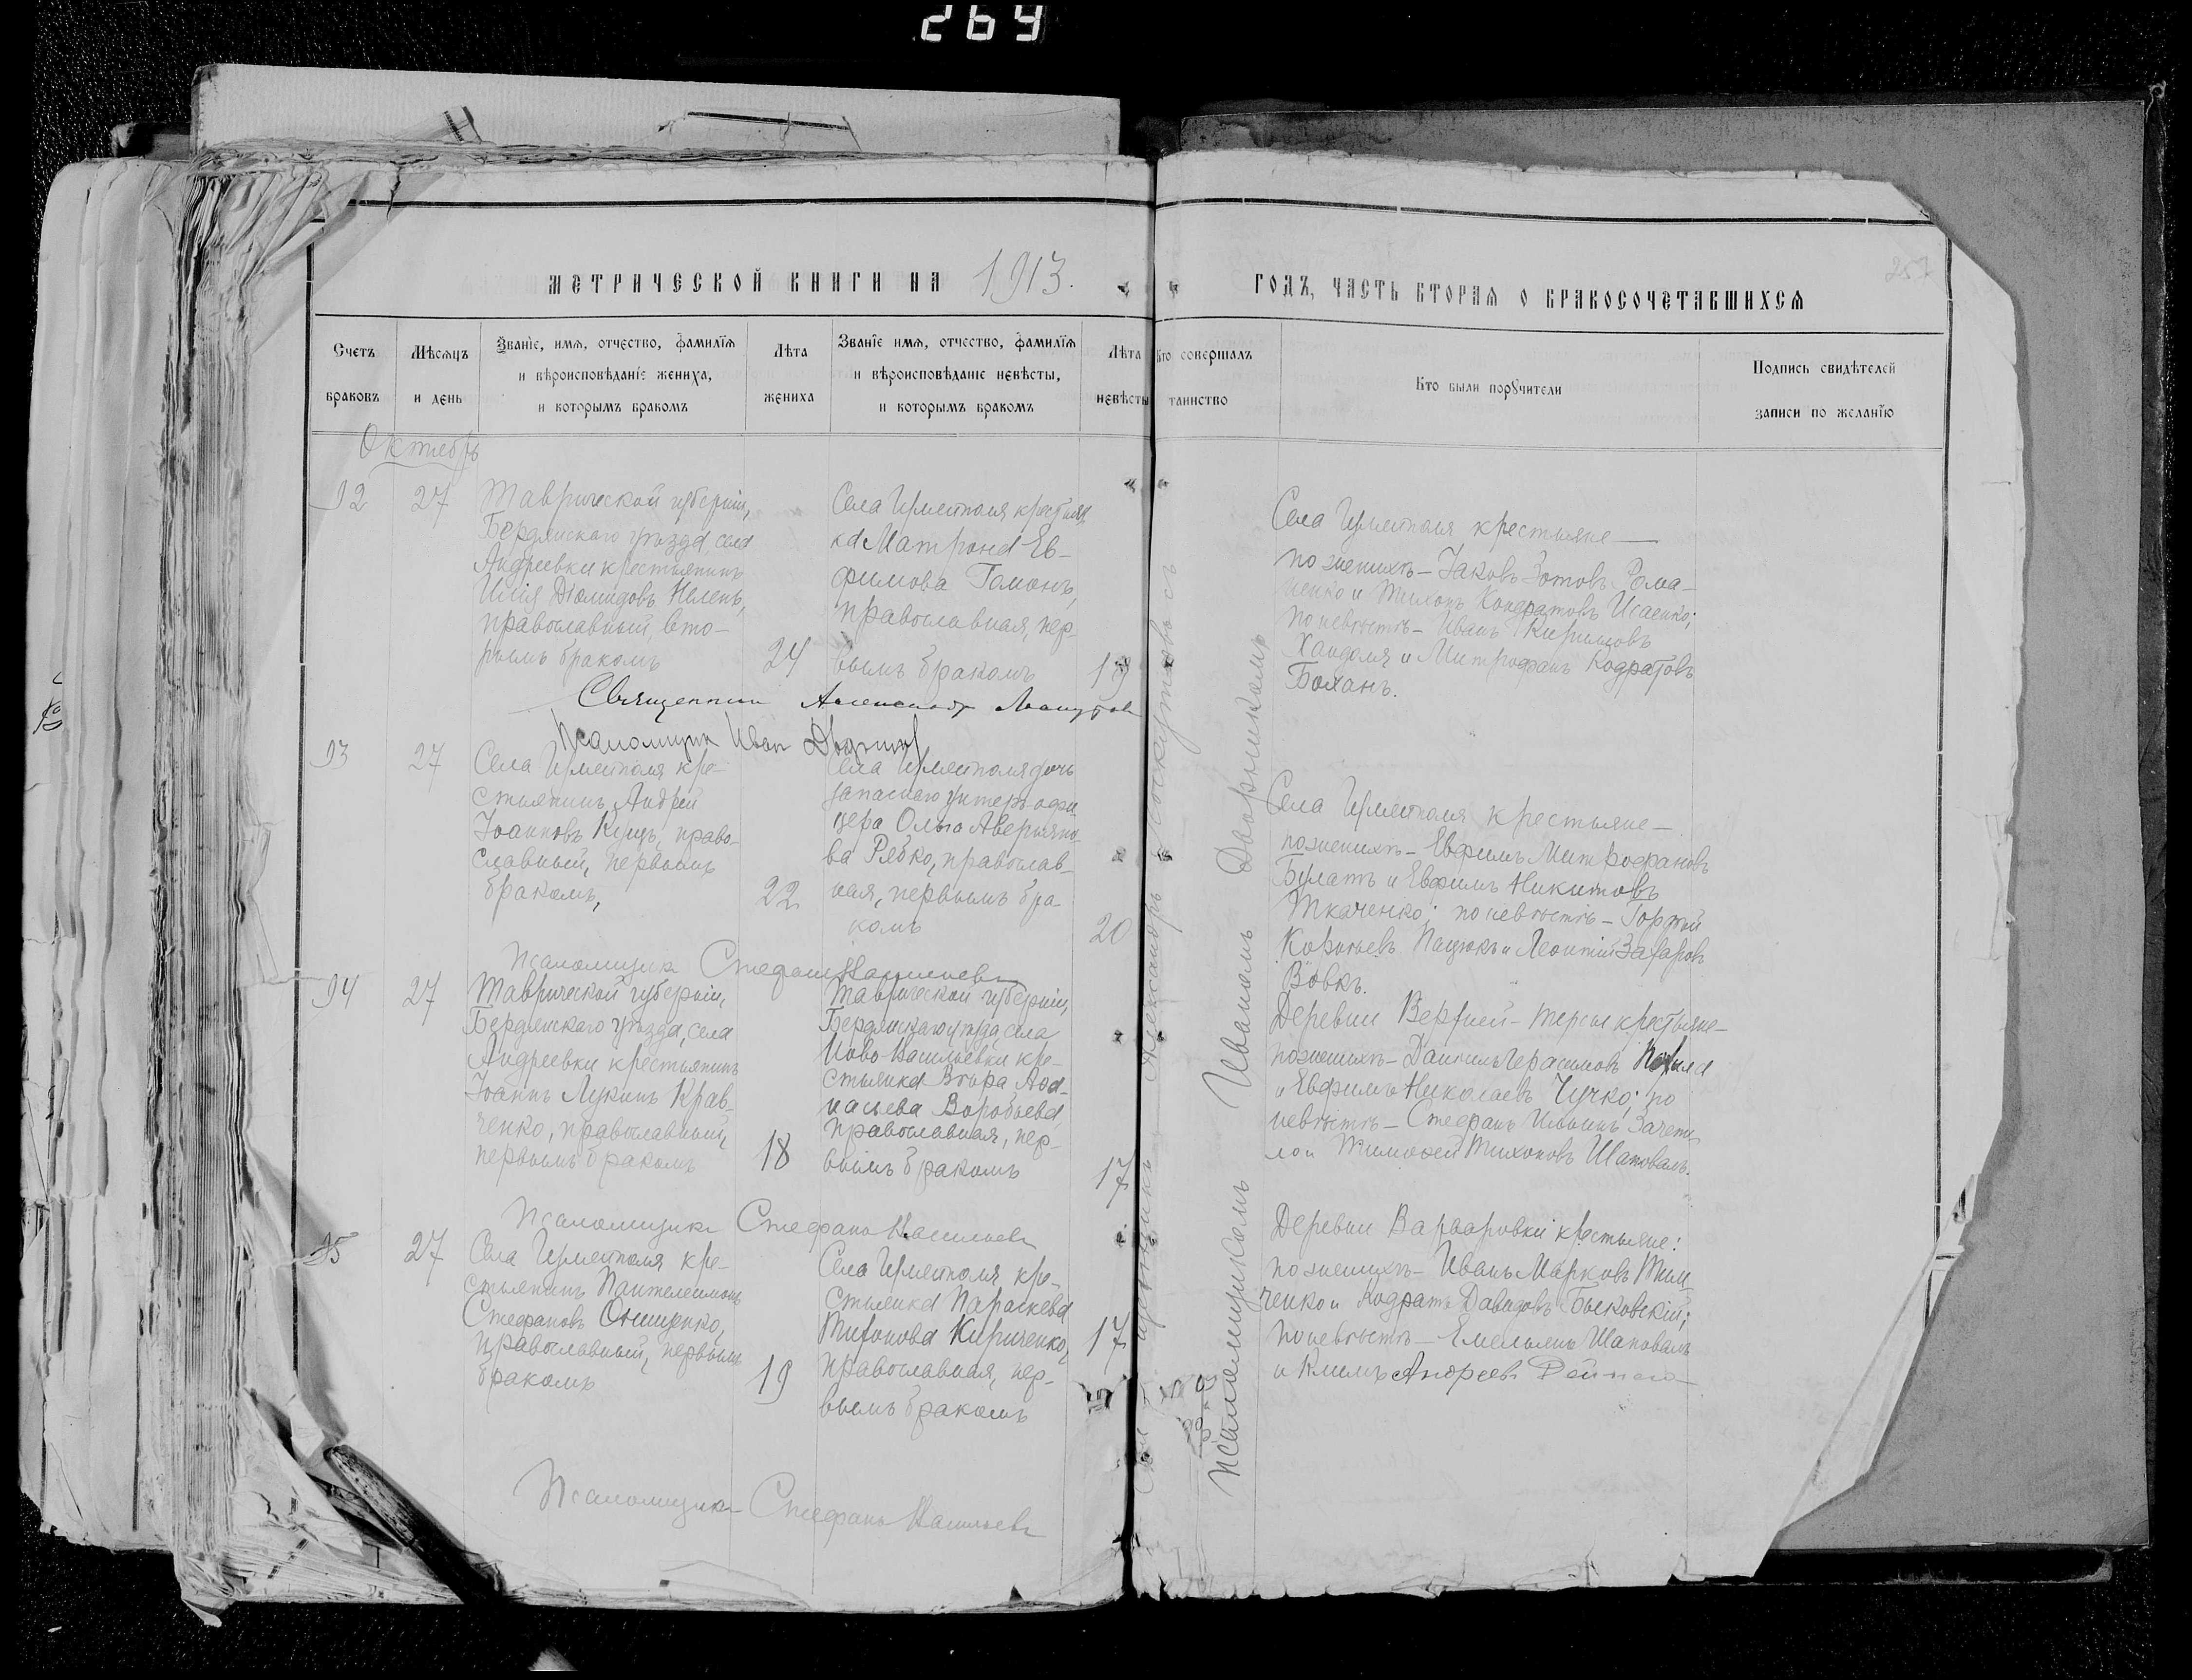 269
МЕТРИЧЕСКОЙ КНИГИ НА 1913.
ГОДЪ, ЧАСТЬ ВТОРАЯ О БРАКОСОЧЕТАВШИХСЯ
257
Счетъ браковъ
Мѣсяцъ и день
Званіе, имя, отчество, фамилія
и вѣроисповѣданіе жениха,
и которымъ бракомъ
Лѣта жениха
Званіе имя, отчество, фамилія
и вѣроисповѣданіе невѣсты,
и которымъ бракомъ
Лѣта невѣсты
Кто совершалъ таинство
Кто были поручители
Подпись свидѣтелей
записи по желанію
Октябрь
92
27
Таврической губерніи,
Бердянскаго уѣзда, села
Андреевки крестьянинъ
Илія Діомидовъ
православный, вто-
рымъ бракомъ
24
Села крестьян
ка Матрона Ев-
фимова Гомонъ,
православная, пер-
вымъ бракомъ
19
Села крестьяне —
по женихѣ — Іаковъ Зотовъ Рома-
ненко и Тихонъ Кондратовъ Исаенко;
по невѣстѣ — Иванъ Кириловъ
и Митрофанъ Кодратовъ
Боханъ.
Священник
Псаломщик Иван
93
27
Села кре-
стьянинъ Андрей
Іоанновъ Куцъ, право-
славный, первымъ
бракомъ,
22
Села дочь
запаснаго унтеръ-офи
цера Ольга Аверьяно-
ва Рябко, православ-
ная, первымъ бра-
комъ
20
Села крестьяне —
по женихѣ — Евфимъ Митрофановъ
Булатъ и Евфимъ Никитовъ
Ткаченко; по невѣстѣ — Гордѣй
Пацюкъ и Леонтій Захаровъ
Вовкъ.
Псаломщикъ Стефанъ Васильевъ
94
27
Таврической губерніи,
Бердянскаго уѣзда, села
Андреевки крестьянинъ
Іоаннъ Лукинъ Крав-
ченко, православный,
первымъ бракомъ
18
Таврической губерніи,
Бердянскаго уѣзда, села
Ново-Васильевки кре-
стьянка Вѣра Аѳа-
насьева Воробьева,
православная, пер-
вымъ бракомъ
17
Деревни Верхней-Терсы крестьяне —
по женихѣ — Даніилъ Герасимовъ
и Евфимъ Николаевъ Чучко; по
невѣстѣ — Стефанъ Ильинъ
Тимофей Тихоновъ Шаповалъ.
Псаломщикъ Стефанъ Васильевъ
95
27
Села кре-
стьянинъ Пантелеимонъ
Стефановъ Онищенко,
православный, первымъ
бракомъ
19
Села кре-
стьянка Параскева
Кириченко,
православная, пер-
вымъ бракомъ
17
Деревни Варваровки крестьяне:
по женихѣ — Иванъ Марковъ Тим-
ченко и Кодратъ Давидовъ Быковскій;
по невѣстѣ — Емельянъ Шаповалъ
и Климъ Андреевъ
Псаломщикъ Стефанъ Васильевъ
Александръ
псаломщикомъ Иваномъ Дворниковымъ